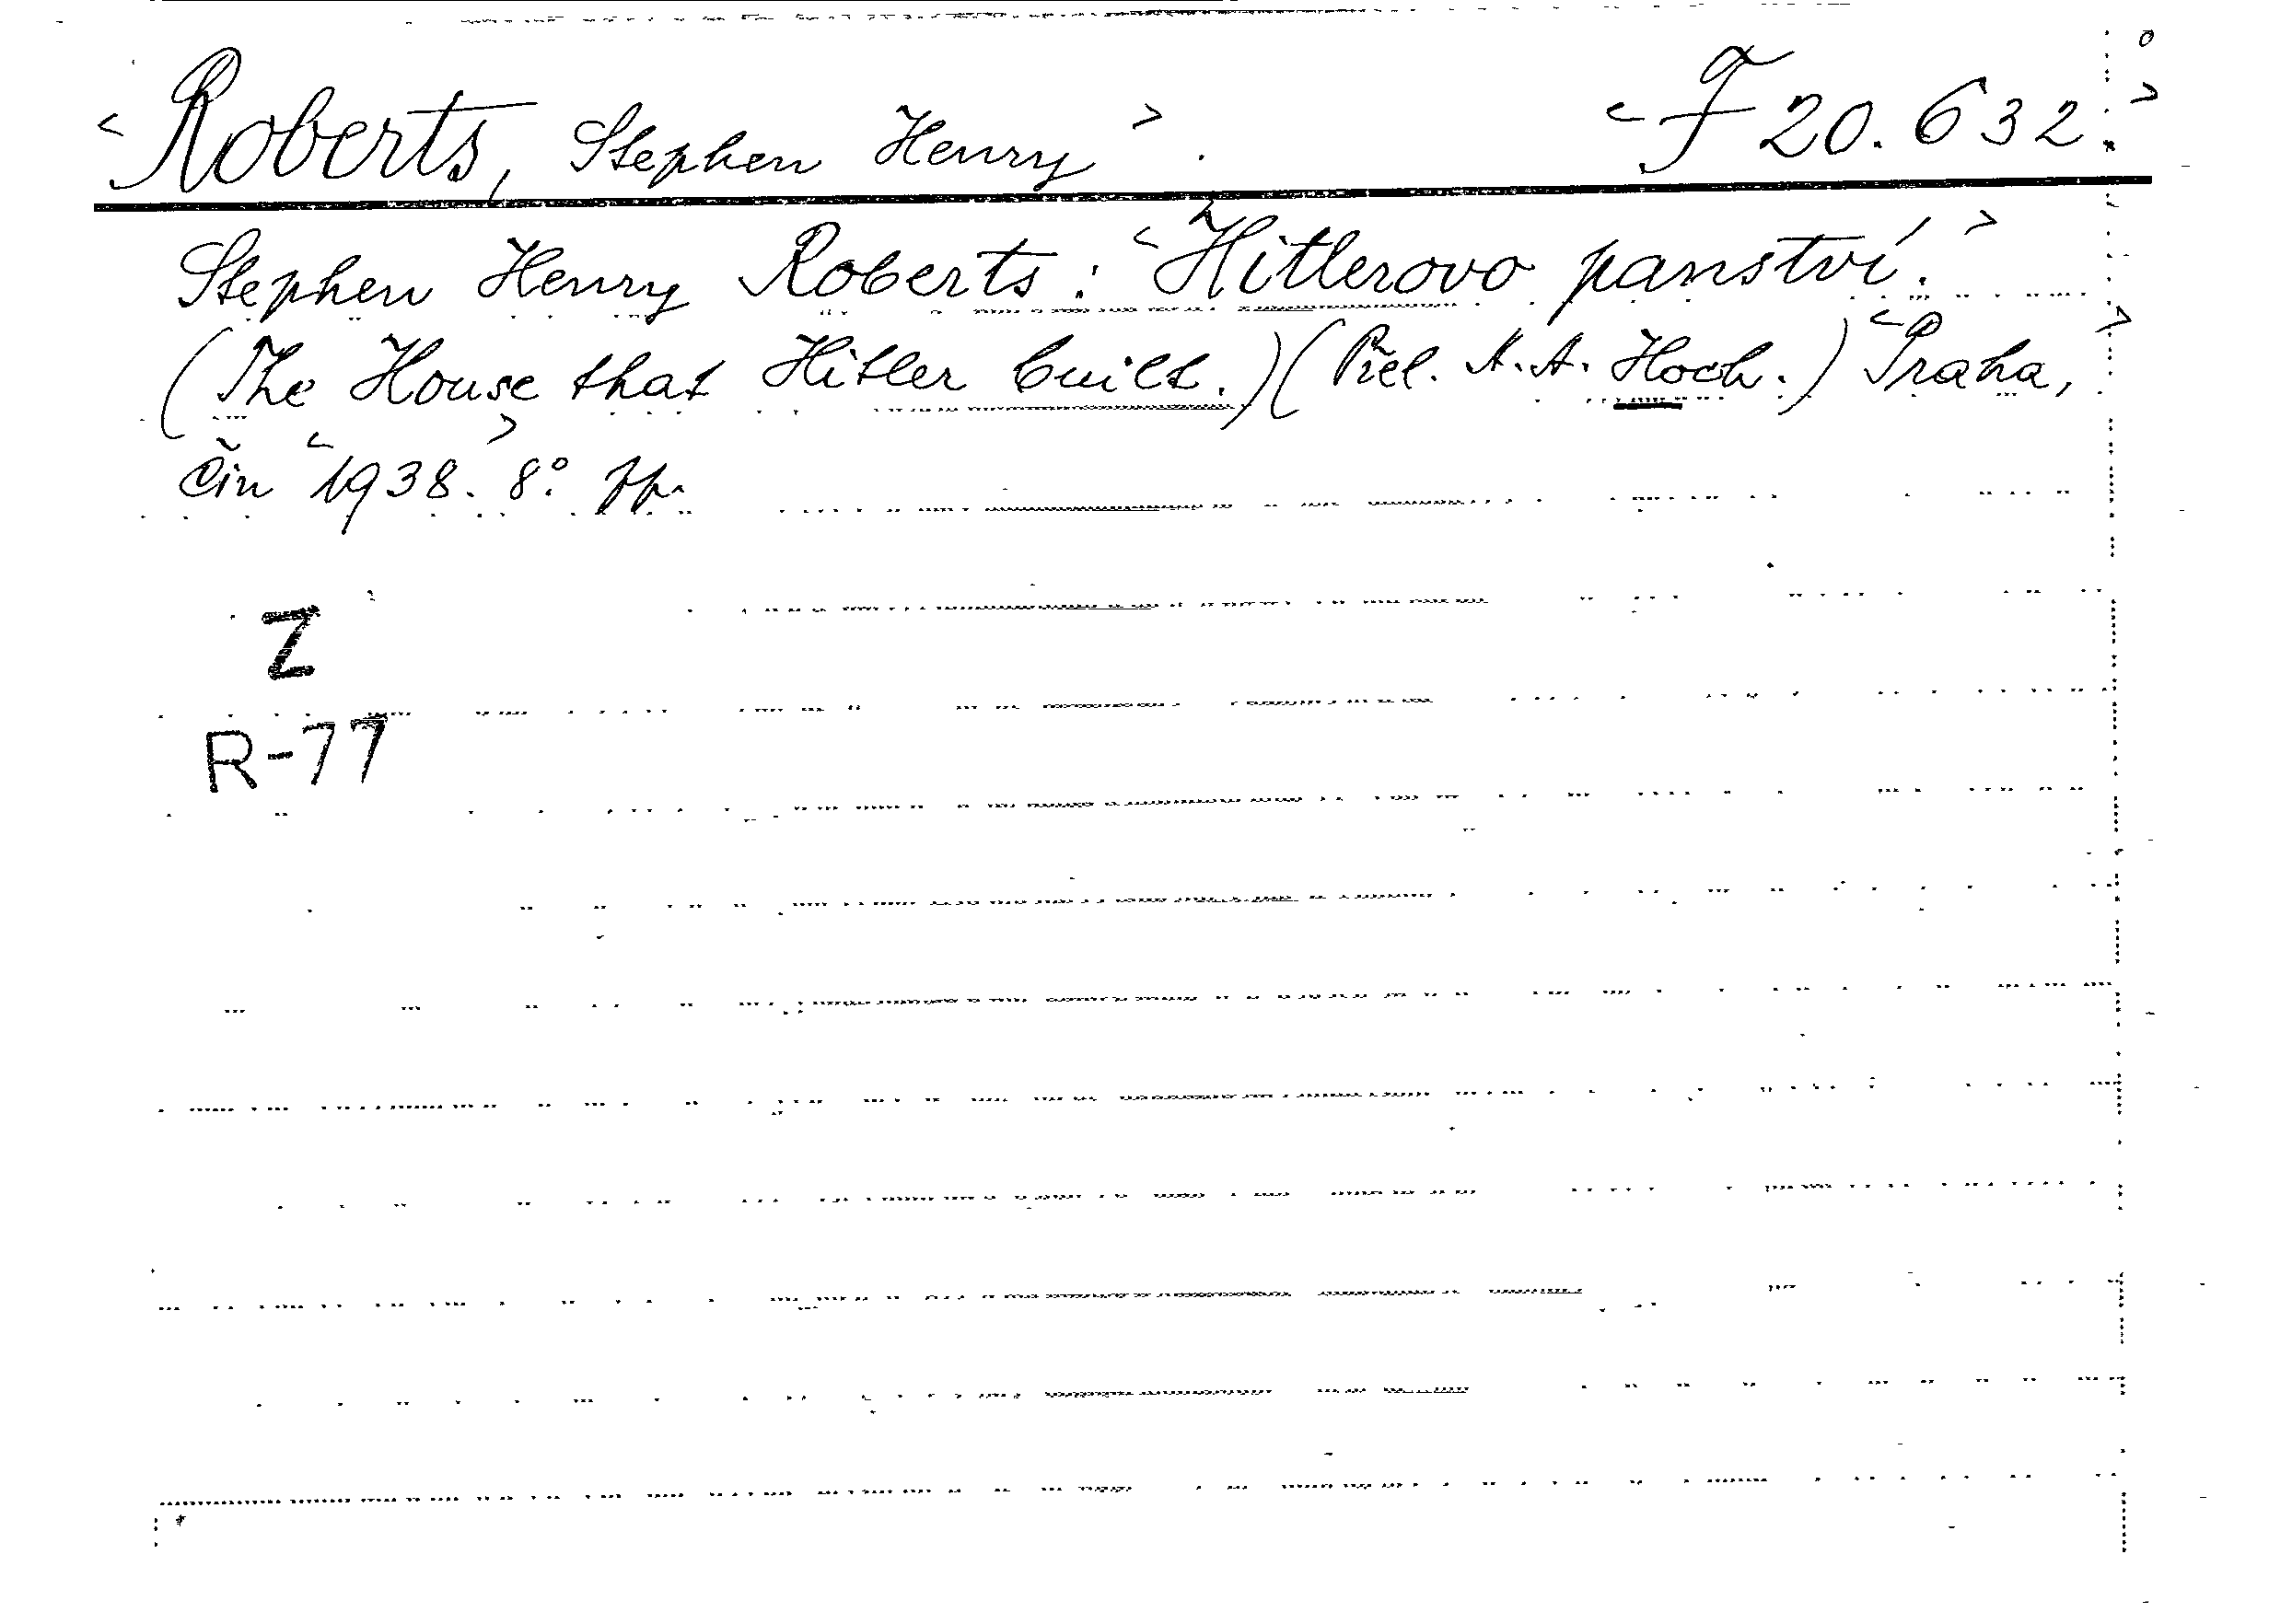 <Roberts, Stephen Henry>. <F 20.632.>
Stephen Henry Roberts: <Hitlerovo panství.>
(The House that Hitler built.) (Přel. K. A. Hoch.) <Praha,>
Čin <1938.> 8°. pp.
Z
R-77